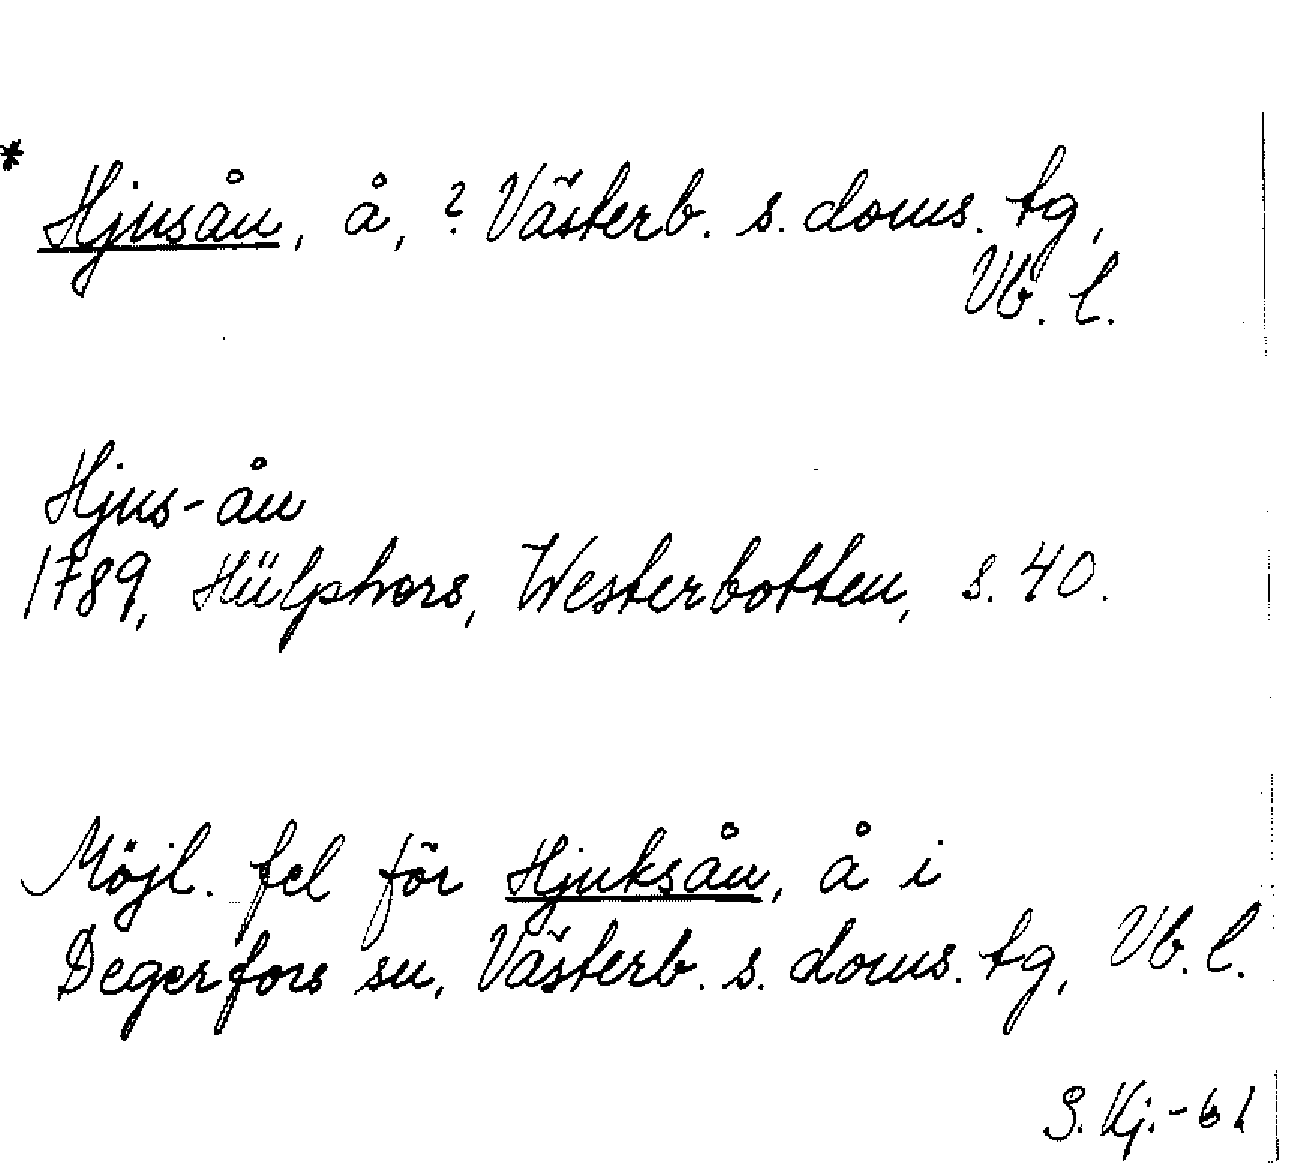 * Hjusån, å, ? Västerb. s. doms. tg,
Vb. l.
Hjus-ån
1789, Hülphers, Westerbotten, s. 40.
Möjl. fel för Hjuksån, å i
Degerfors sn, Västerb. s. doms. tg, Vb. l.
S. Kj. -61